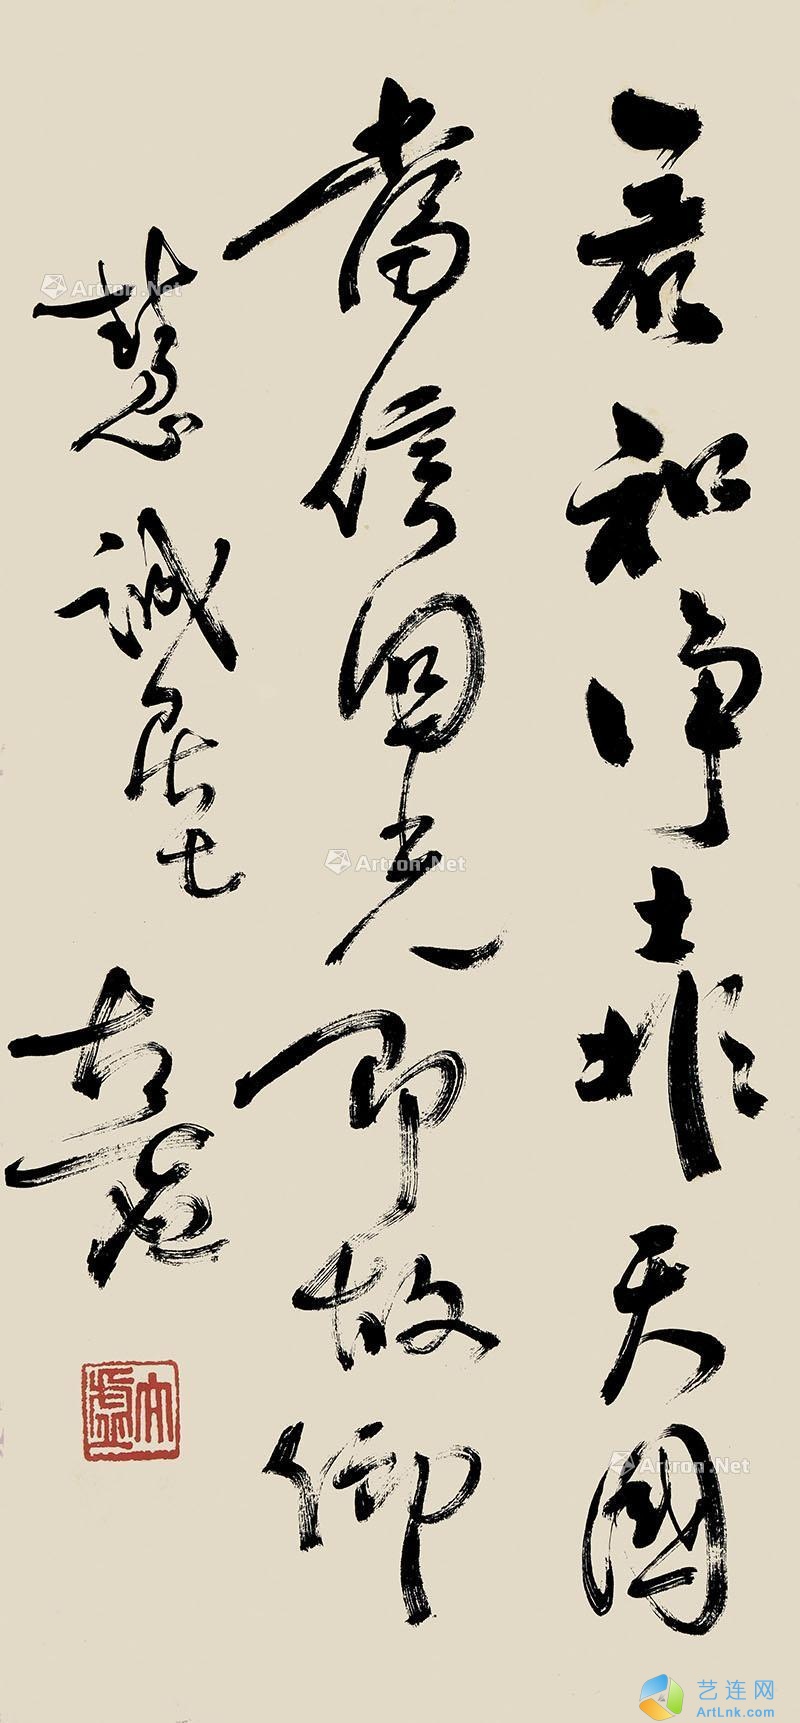 知净土非天國
當信回光即故鄉
慧誠居士
太虛
太虛
Artron.Net
Artron.Net
Artron.Net
艺连网
ArtLnk.com